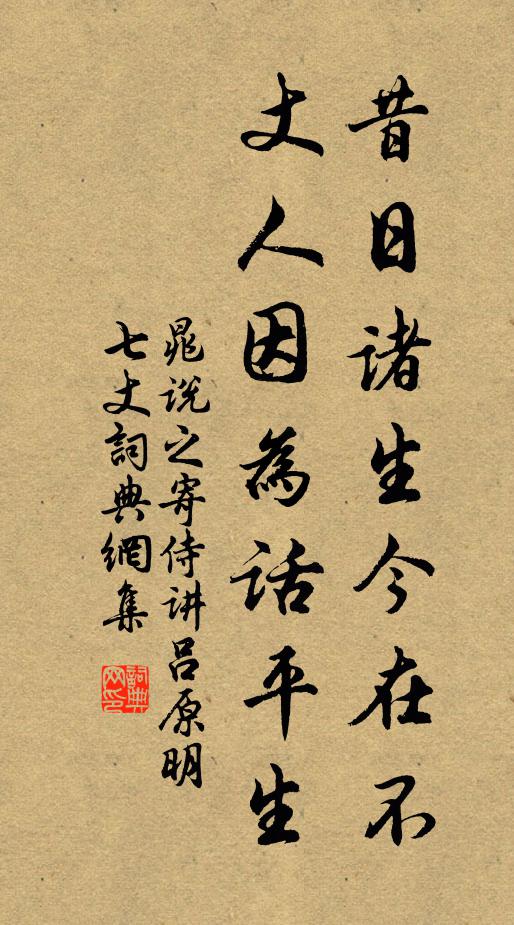 昔日諸生今在不
丈人因為話平生
晁説之寄侍讲吕原明
七丈詞典網集
詞典
网印